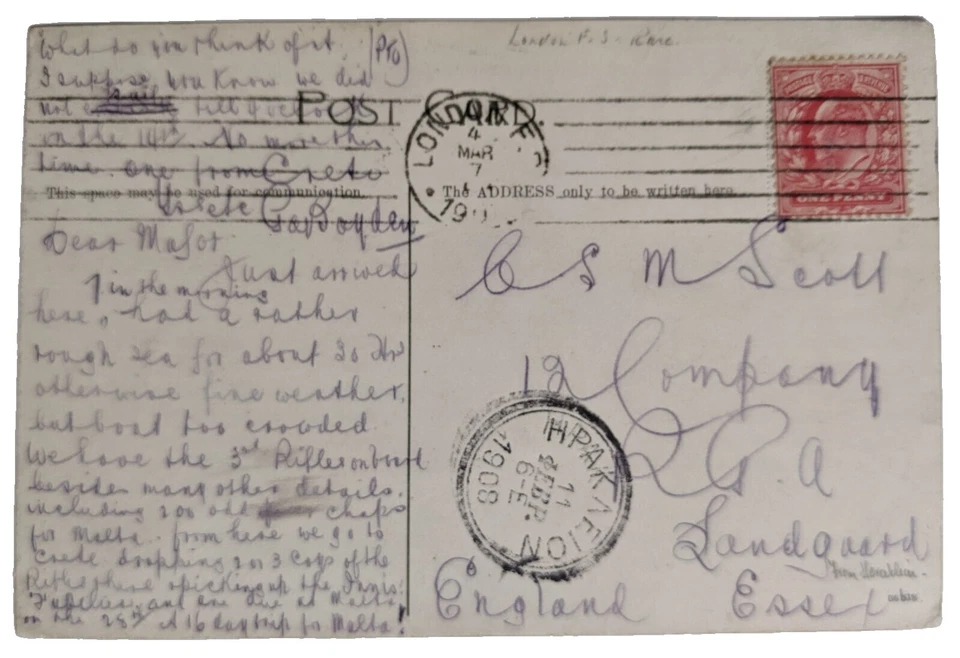 What do you think of it (PTO)
I suppose you know we did
not till 4 o'clock
on the 14th. No more this
time. one from Crete
London F. S. Rare.
POST CARD.
This space may be used for communication.
The ADDRESS only to be written here.
LONDON
4
MAR
7
190
ONE PENNY
Dear Major
Just arrived
1 in the morning
here, had a rather
rough sea for about 30 Hrs
otherwise fine weather,
but boat too crowded
We have the 3rd Rifles on board
besides many other details,
including 200 odd chaps
for Malta. from here we go to
Crete dropping 2 or 3 Coys of the
Rifles there & picking up the Innis:
Fusiliers, and are due at Malta
on the 28th A 16 day trip to Malta!
C S M Scott
12 Company
R G A
Landguard
Essex
England
ΗΡΑΚΛΕΙΟΝ
11
ΦΕΒΡ.
6-Ε
1908
from Heraklion